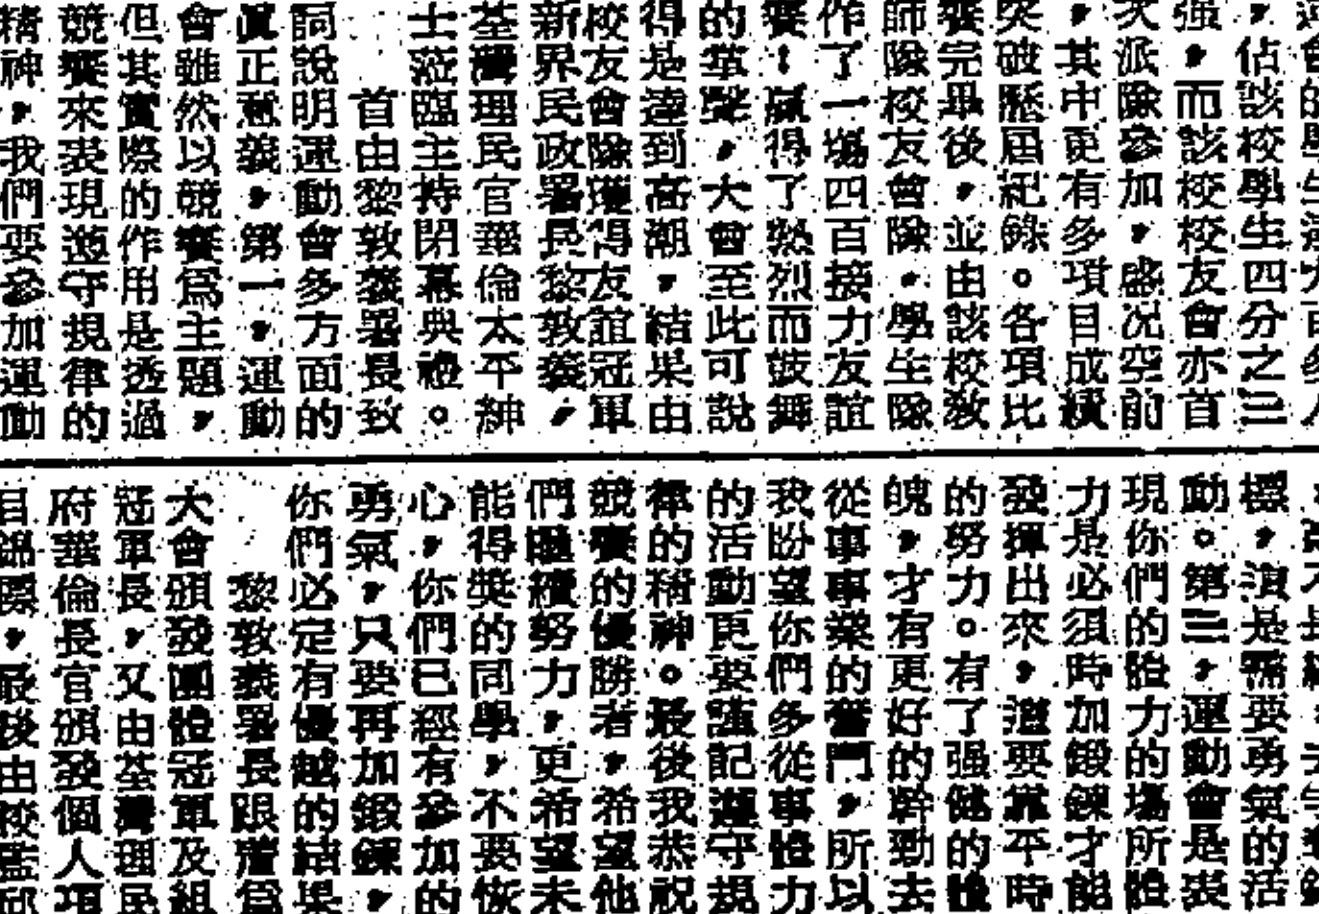 ，佔該校學生四分之三
强，而該校校友會亦首
次派隊參加，盛况空前
，其中更有多項目成績
突破歷屆紀錄。各項比
賽完畢後，並由該校敎
師隊校友會隊，學生隊
作了一場四百接力友誼
賽！贏得了熱烈而鼓舞
的掌聲，大會至此可說
得是達到高潮，結果由
校友會隊獲得友誼冠軍
新界民政署長黎敦義，
荃灣理民官華倫太平紳
士蒞臨主持閉幕典禮。
首由黎敦義署長致
詞說明運動會多方面的
眞正意義，第一，運動
會雖然以競賽爲主題，
但其實際的作用是透過
競賽來表現遵守規律的
精神，我們要參加運動
標，演是需要勇氣的活
動。第三，運動會是表
現你們的體力的場所體
力是必須時加鍛鍊才能
發揮出來，還要靠平時
的努力。有了强健的體
魄，才有更好的幹勁去
從事事業的奮鬥，所以
我盼望你們多從事體力
的活動更要謹記遵守規
律的精神。最後我恭祝
競賽的優勝者，希望他
們繼續努力，更希望未
能得獎的同學，不要恢
心，你們已經有參加的
勇氣，只要再加鍛鍊，
你們必定有優越的結果
黎敦義署長跟着爲
大會頒發團體冠軍及組
冠軍長，又由荃灣理民
府華倫長官頒發個人項
目錦標，最後由校監邱